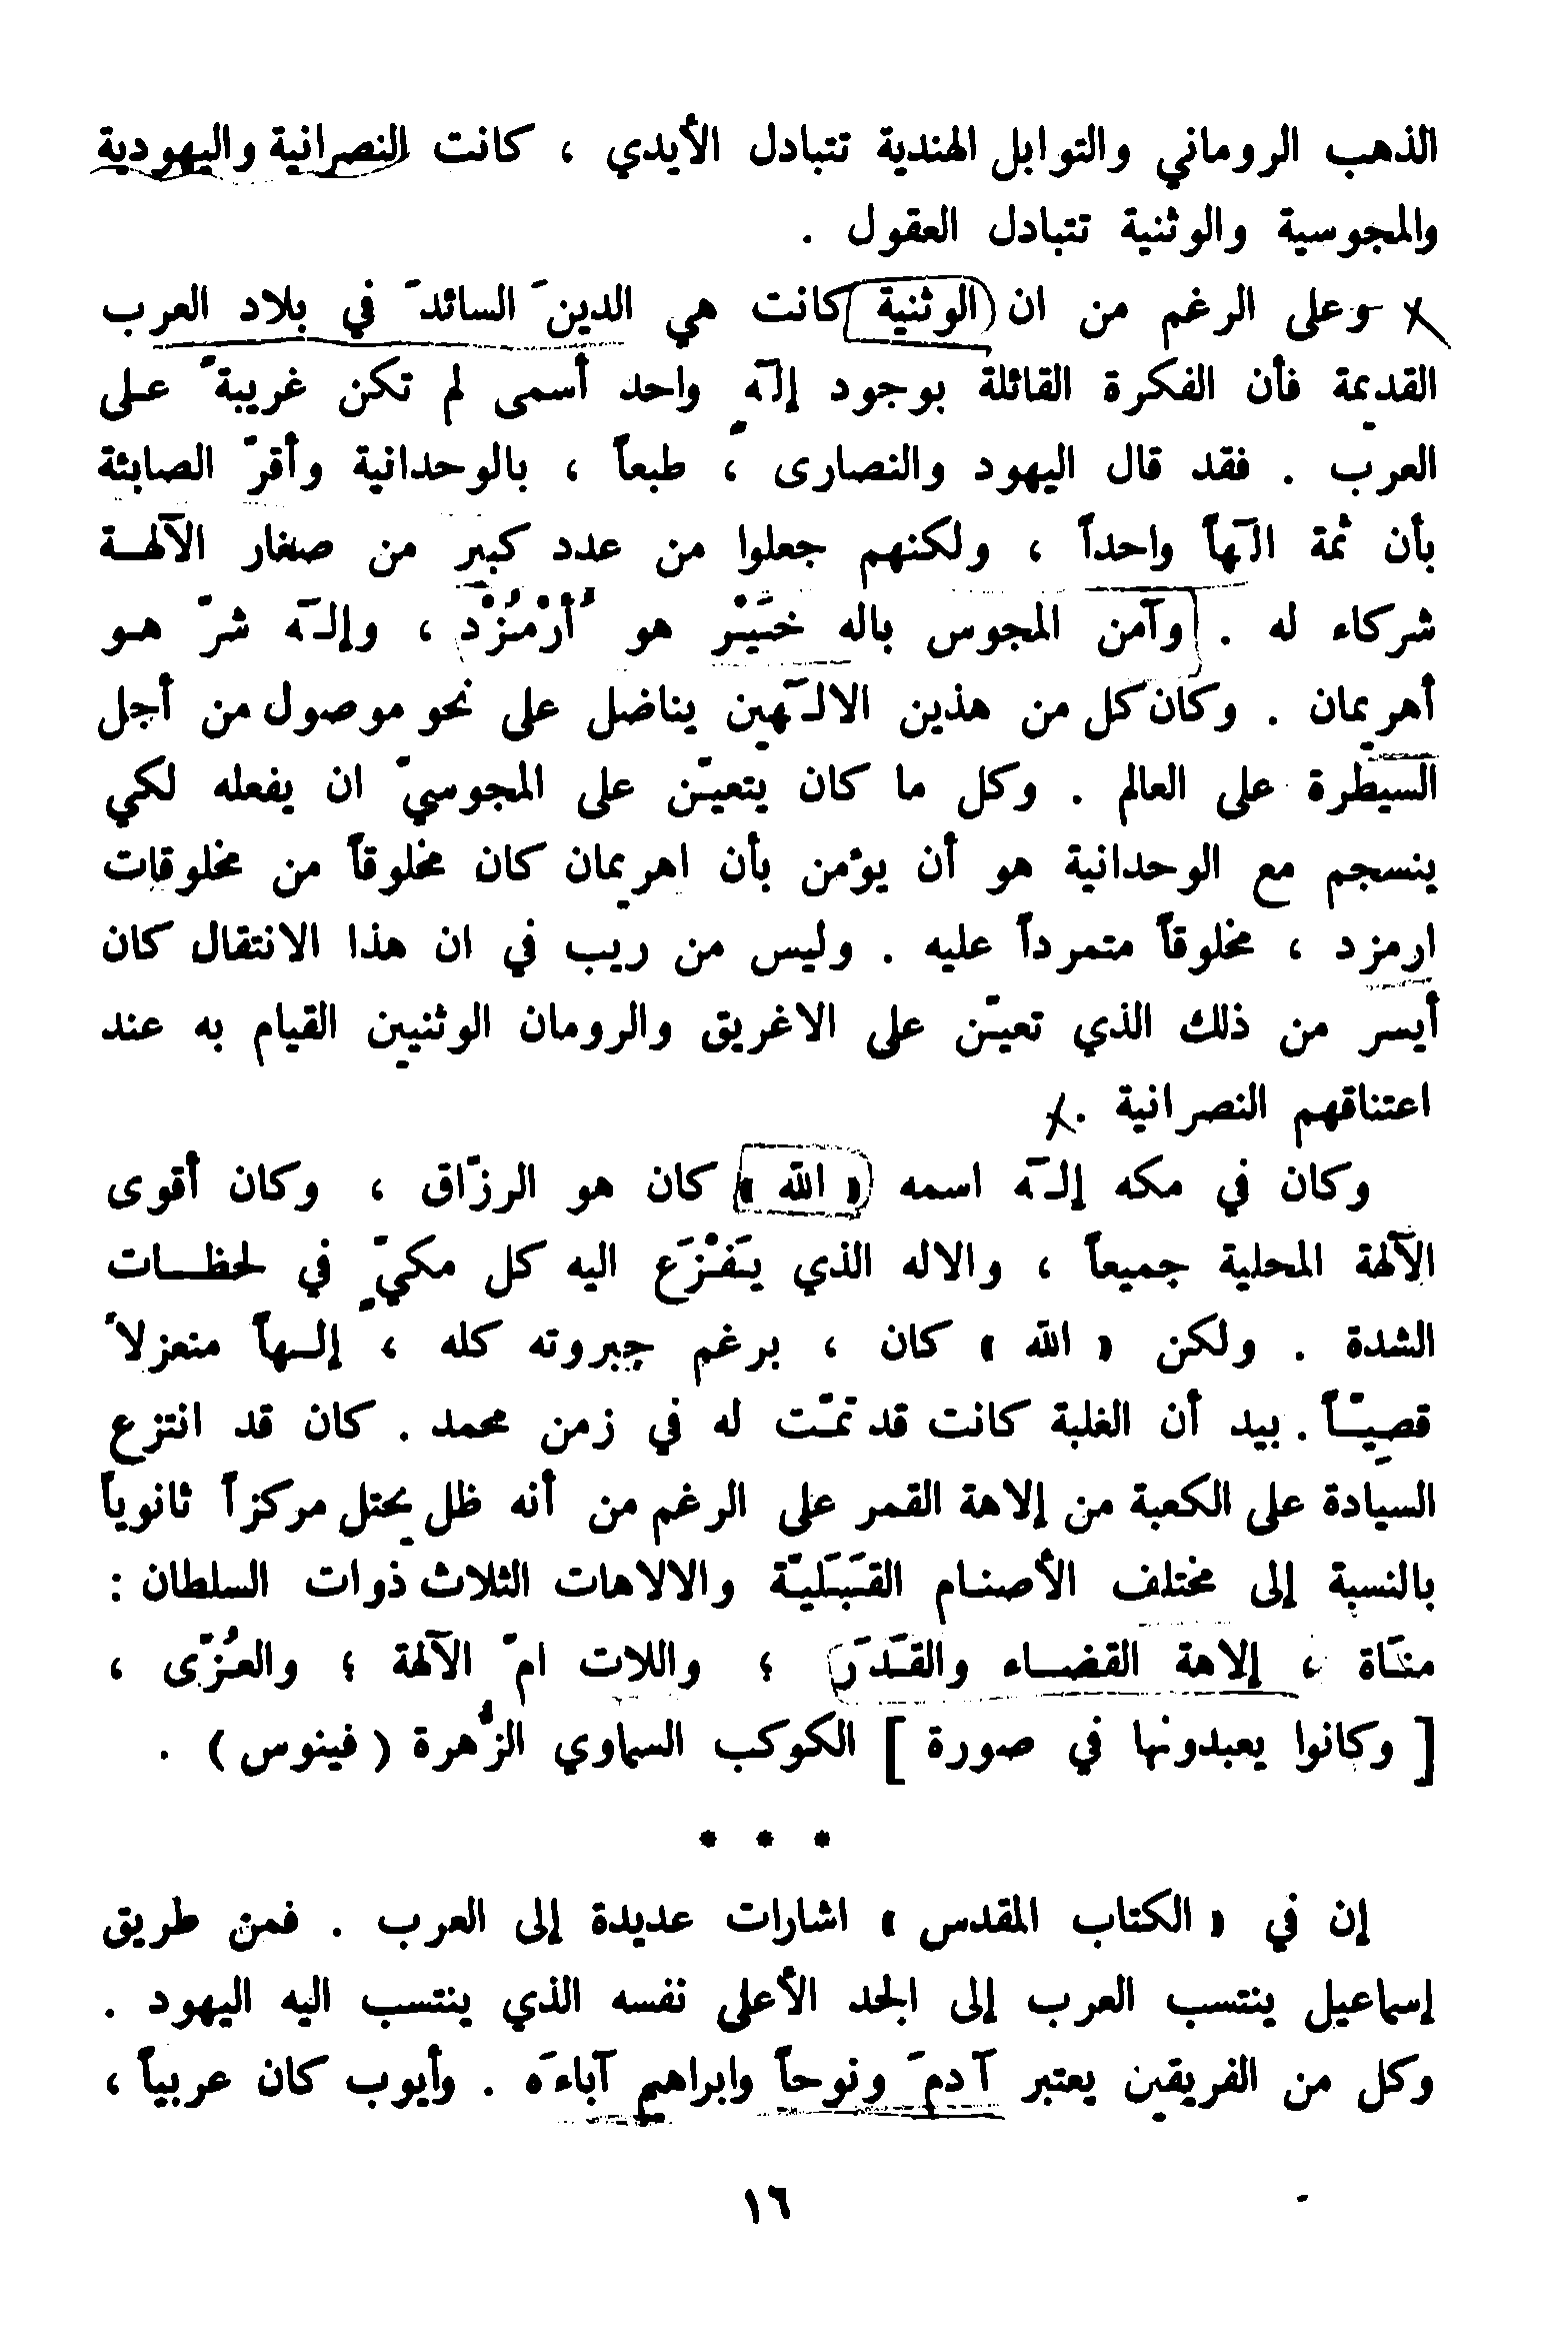 الذهب الروماني والتوابل الهندية تتبادل الأيدي ، كانت النصرانية واليهودية
والمجوسية والوثنية تتبادل العقول .
وعلى الرغم من ان الوثنية كانت هي الدينَ السائدَ في بلاد العرب
القديمة فأن الفكرة القائلة بوجود إلَهٍ واحد أسمى لم تكن غريبةً على
العرب . فقد قال اليهود والنصارى ، طبعاً ، بالوحدانية وأقرّ الصابئة
بأن ثمة الَهاً واحداً ، ولكنهم جعلوا من عدد كبير من صغار الآلهة
شركاء له . وآمن المجوس باله خَيْر هو أُرْمُزْد ، وإلَه شرّ هو
أهريمان . وكان كل من هذين الالَهين يناضل على نحو موصول من أجل
السيطرة على العالم . وكل ما كان يتعيّن على المجوسيّ ان يفعله لكي
ينسجم مع الوحدانية هو أن يؤمن بأن اهريمان كان مخلوقاً من مخلوقات
ارمزد ، مخلوقاً متمرداً عليه . وليس من ريب في ان هذا الانتقال كان
أيسر من ذلك الذي تعيّن على الاغريق والرومان الوثنيين القيام به عند
اعتناقهم النصرانية .
وكان في مكه إلَه اسمه « الله » كان هو الرزّاق ، وكان أقوى
الآلهة المحلية جميعاً ، والاله الذي يَفْزَع اليه كل مكيّ في لحظات
الشدة . ولكن « الله » كان ، برغم جبروته كله ، إلهاً منعزلاً
قصِيّاً . بيد أن الغلبة كانت قد تمّت له في زمن محمد . كان قد انتزع
السيادة على الكعبة من إلاهة القمر على الرغم من أنه ظل يحتل مركزاً ثانوياً
بالنسبة إلى مختلف الأصنام القَبَليّة والالاهات الثلاث ذوات السلطان :
مَناة ، إلاهة القضاء والقَدَر ؛ واللات امّ الآلهة ؛ والعُزّى ،
[ وكانوا يعبدونها في صورة ] الكوكب السماوي الزُّهرة ( فينوس ) .
* * *
إن في « الكتاب المقدس » اشارات عديدة إلى العرب . فمن طريق
إسماعيل ينتسب العرب إلى الجد الأعلى نفسه الذي ينتسب اليه اليهود .
وكل من الفريقين يعتبر آدمَ ونوحاً وابراهيم آباءَه . وأيوب كان عربياً ،
١٦